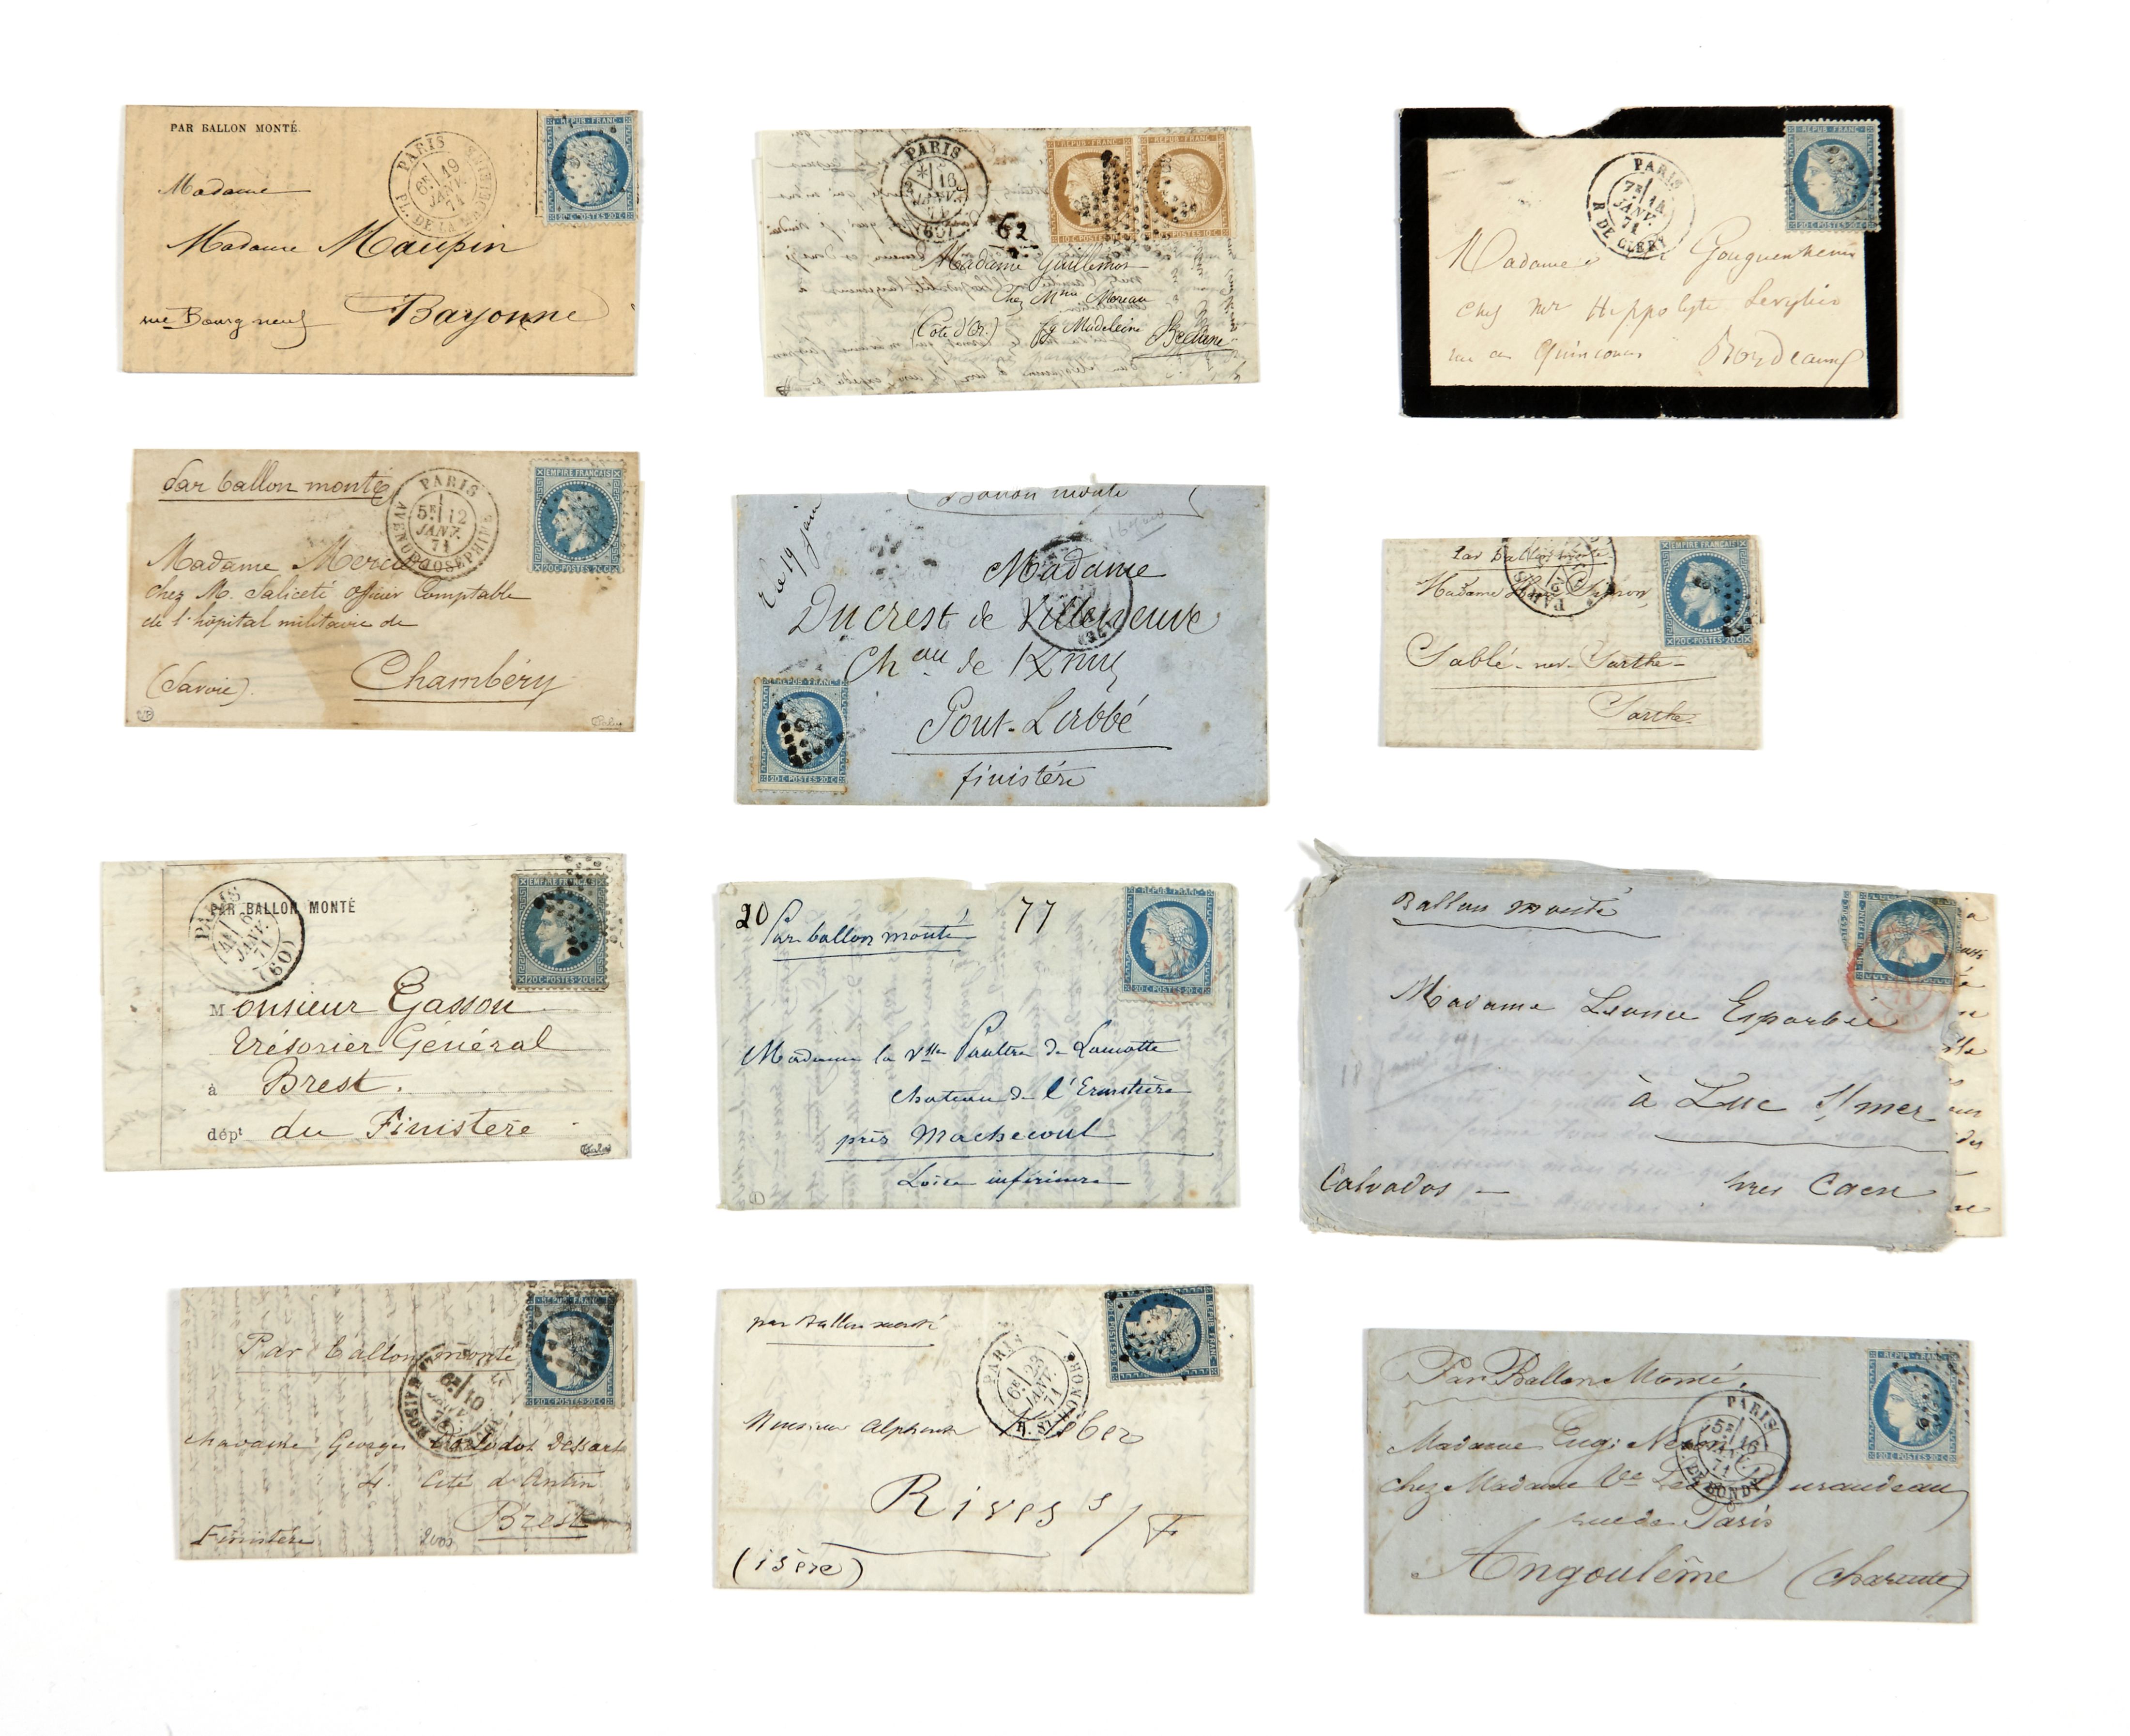 PAR BALLON MONTÉ.
PARIS
6E 19
JANV.
71
PL. DE LA MADELEINE
REPUB. FRANC.
20 C. POSTES 20 C.
Madame
Madame Maupin
rue Bourg neuf
Bayonne
PARIS
16
JANV.
71
(60)
REPUB. FRANC.
10 C. POSTES 10 C.
REPUB. FRANC.
10 C. POSTES 10 C.
62
Madame Guillemot
Chez Mme Moreau
(Côte d'Or.) fg Madeleine Beaune
PARIS
7E 14
JANV.
71
R. DE CLERY
REPUB. FRANC.
20 C. POSTES 20 C.
Madame Gouguenheim
chez Mr Hippolyte Levylier
rue Quinconces Bordeaux
Par ballon monté
PARIS
5E 12
JANV.
71
AVENUE JOSEPHINE
EMPIRE FRANÇAIS
20 C. POSTES 20 C.
Madame
chez M. Saliceti officier Comptable
de l'hôpital militaire de
(Savoie). Chambéry
Ballon monté
Le 19 janv
Madame
Ducrest de Villeneuve
Chau de
Pont-Labbé
finistère
REPUB. FRANC.
20 C. POSTES 20 C.
Par ballon monté
PARIS
EMPIRE FRANÇAIS
20 C. POSTES 20 C.
Madame
Sablé-sur-Sarthe
Sarthe
PAR BALLON MONTÉ
PARIS
6
JANV.
71
(60)
EMPIRE FRANÇAIS
20 C. POSTES 20 C.
Monsieur Gasson
Trésorier Général
à Brest.
dépt du Finistère
20 77
Par ballon monté
REPUB. FRANC.
20 C. POSTES 20 C.
Madame la Vtesse Paultre de Lamotte
chateau de l'Ermitière
près Machecoul
Loire inférieure
Ballon monté
Madame Leonie Esparbié
à Luc s/mer
Calvados — près Caen
Par ballon monté
6E 10
JANV.
71
REPUB. FRANC.
20 C. POSTES 20 C.
Madame Georges Dessarts
4. Cité d'Antin
Brest
Finistère
par ballon monté
PARIS
6E 23
JANV.
71
R. ST HONORE
REPUB. FRANC.
Monsieur Alphonse Kleber
Rives s/F
(isère)
Par Ballon Monté.
PARIS
5E 16
JANV.
71
R. DE BONDY
REPUB. FRANC.
20 C. POSTES 20 C.
Madame Eug:
chez Madame Vve
rue de Paris
Angoulême (charente)